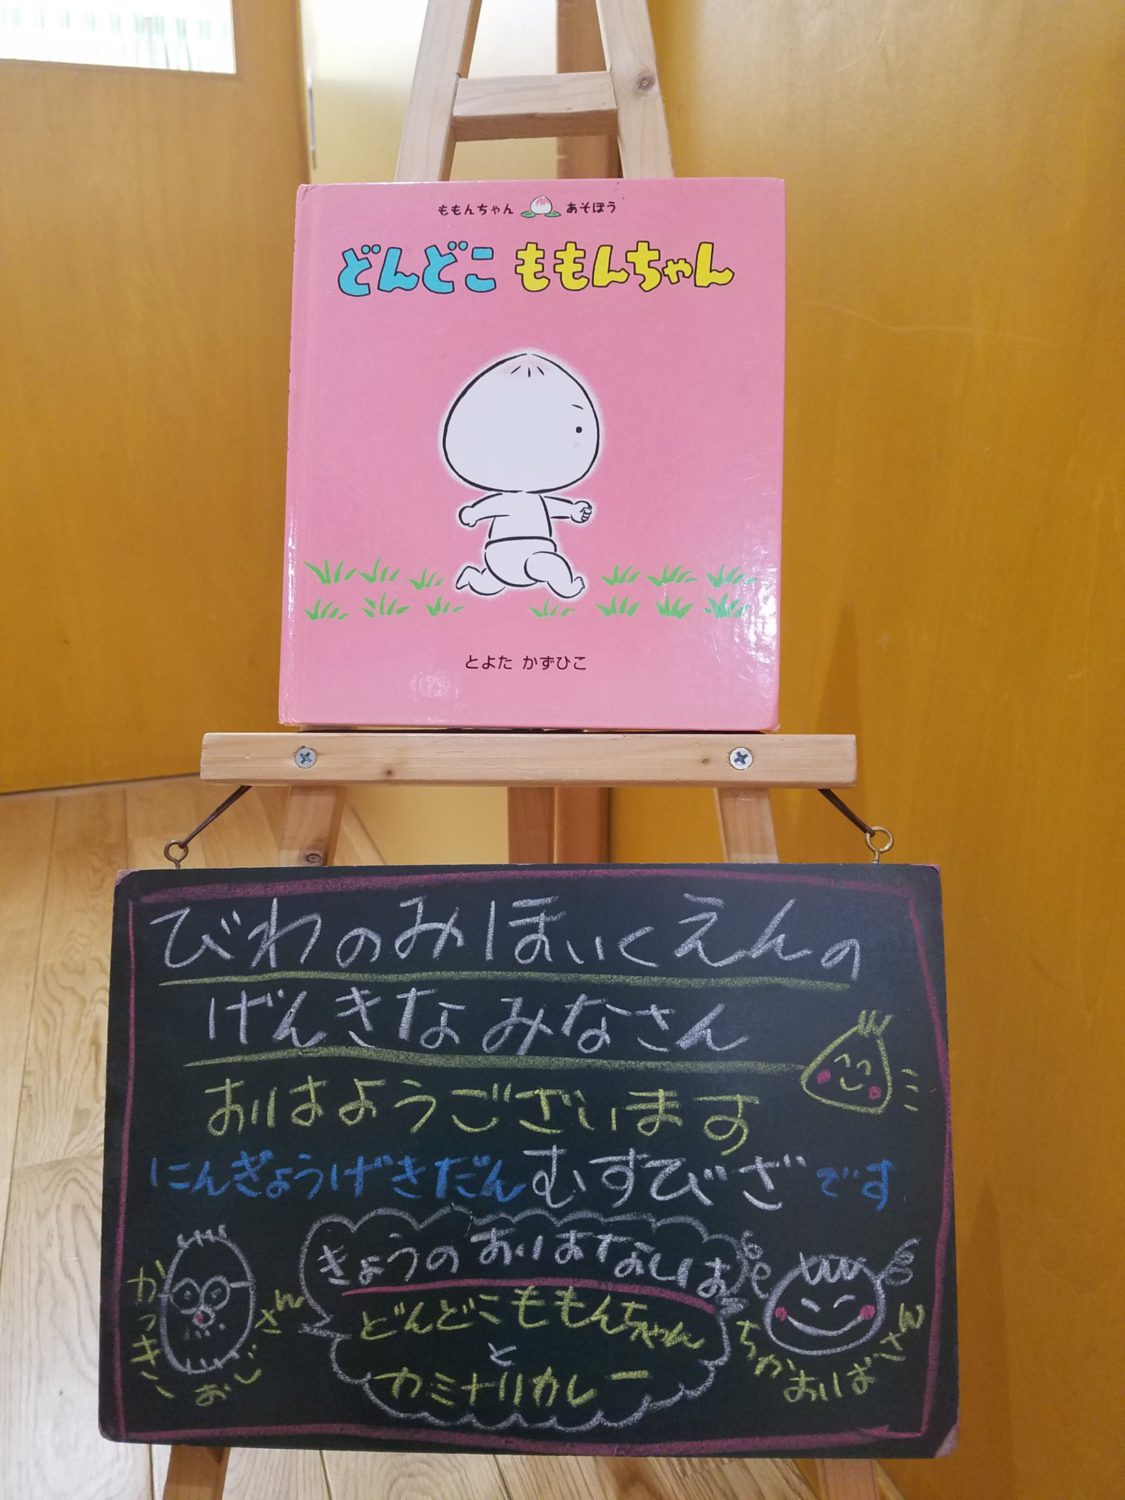 ももんちゃん あそぼう
どんどこ ももんちゃん
とよた かずひこ
びわのみほいくえんの
げんきなみなさん
おはようございます
にんぎょうげきだんむすびざです
きょうのおはなしは
どんどこももんちゃん
と
カミナリカレー
かっきーおじさん
ちかおばさん